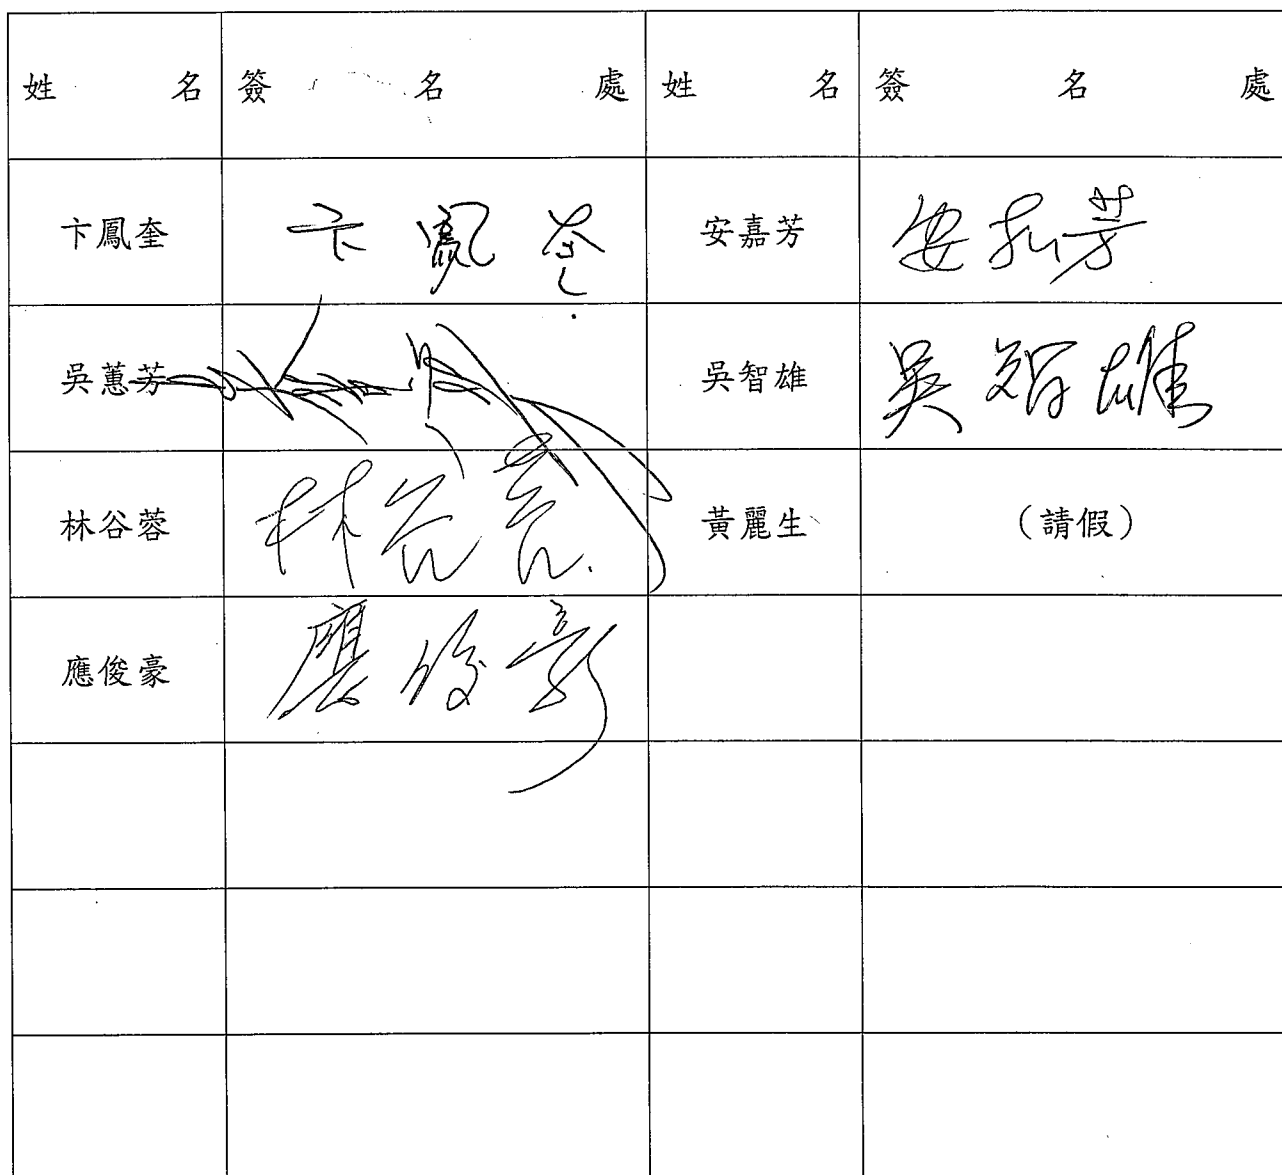 姓名 簽名處 姓名 簽名處
卞鳳奎 卞鳳奎 安嘉芳 安嘉芳
吳蕙芳 吳智雄 吳智雄
林谷蓉 林谷蓉 黃麗生 （請假）
應俊豪 應俊豪